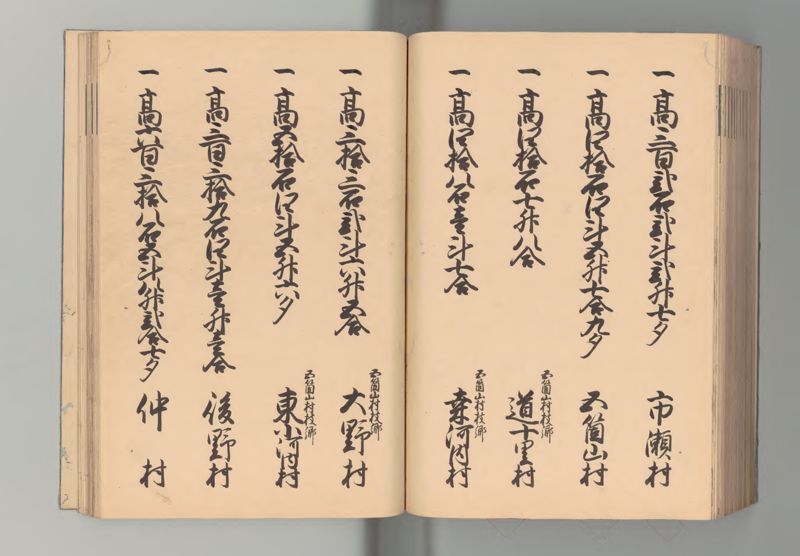 一 高三百弐石弐斗弐升七夕 市瀬村
一 高四拾石四斗五升七合九夕 五箇山村
一 高四拾石七升八合 五箇山村枝郷 道十里村
一 高四拾八石壱斗七合 五箇山村枝郷 桒河内村
一 高三拾三石弐斗六升五合 五箇山村枝郷 大野村
一 高五拾石四斗五升六夕 五箇山村枝郷 東小河内村
一 高三百三拾九石四斗壱升壱合 後野村
一 高六百三拾八石五斗八升弐合七夕 仲村